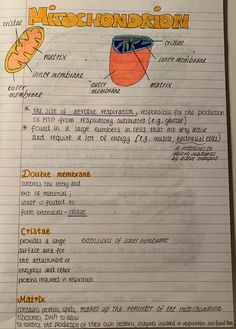 MITOCHONDRION
cristae
cristae
matrix
inner membrane
inner membrane
outer membrane
outer membrane
matrix
* the site of aerobic respiration, responsible for the production
of ATP from respiratory substrates (e.g. glucose)
* found in a large numbers in cells that are very active
and require a lot of energy (e.g. muscle, epithelial cells)
in intestines to
absorb substances
by active transport
Double membrane
controls the entry and
exit of material;
inner is folded to
form extensions - cristae
Cristae
extensions of inner membrane
provides a large
surface area for
the attachment of
enzymes and other
proteins required in respiration
Matrix
contains protein, lipids, makes up the remainder of the mitochondria
ribosomes, DNA to allow
to control the production of their own proteins, enzymes involved in respiration are found here